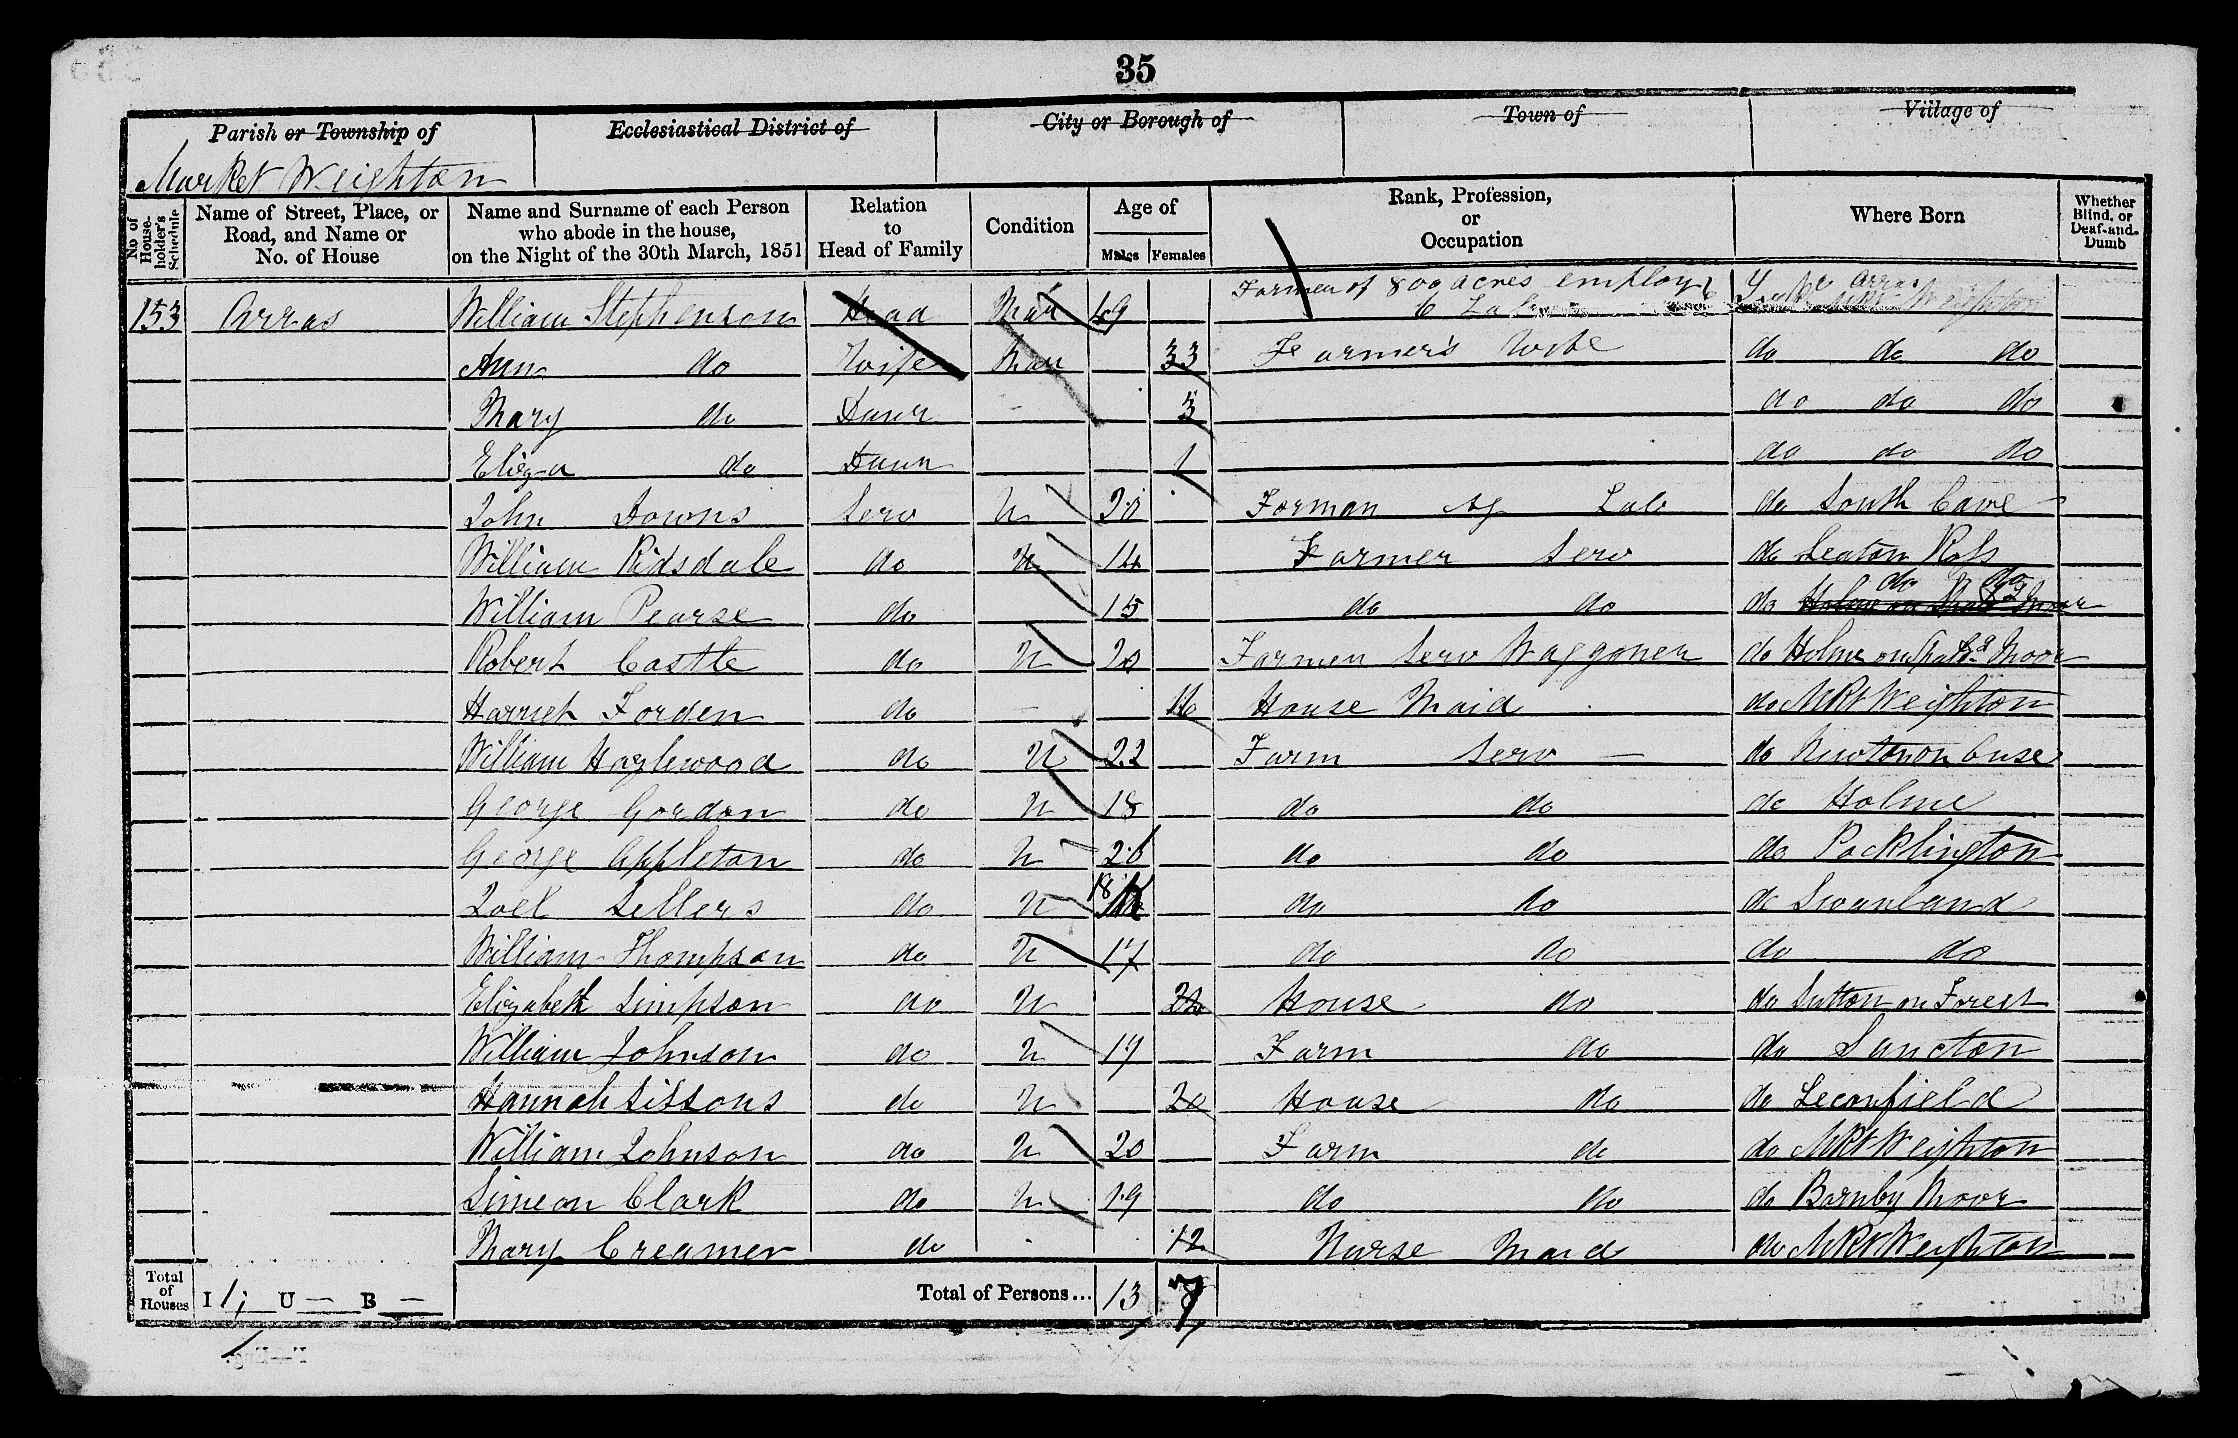 35
Parish or Township of Ecclesiastical District of City or Borough of Town of Village of
Market Weighton
No of House-holder's Schedule Name of Street, Place, or Road, and Name or No. of House Name and Surname of each Person who abode in the house, on the Night of the 30th March, 1851 Relation to Head of Family Condition Age of Males Females Rank, Profession, or Occupation Where Born Whether Blind, or Deaf-and-Dumb
153 Arras William Stephenson Head Mar 49 Farmer of 800 acres employ 6 Lab Arras
Ann do Wife Mar 33 Farmer's Wife do do do
Mary do Daur 3 do do do
Eliza do Daur 1 do do do
John Downs Serv U 20 Forman Ag Lab do South Cave
William Ridsdale do U 14 Farmer Serv do Seaton Ross
William Pearse do 15 do do do do do
Robert Castle do U 20 Farmer Serv Waggoner do Holme on Spald.g Moor
Harriet Forden do 16 House Maid do Mkt Weighton
William Hazlewood do U 22 Farm Serv do Newton on Ouse
George Gordon do U 18 do do do Holme
George Appleton do U 26 do do do Pocklington
Joel Sellers do U 18 do do do Swanland
William Thompson do U 17 do do do do
Elizabeth Simpson do U House do do Sutton on Forest
William Johnson do U 17 Farm do do Sancton
Hannah Sissons do U 20 House do do Leconfield
William Johnson do U 20 Farm do do Mkt Weighton
Simeon Clark do U 19 do do do Barnby Moor
Mary Creamer do 12 Nurse Maid do Mkt Weighton
Total of Houses I 1; U — B — Total of Persons... 13 7